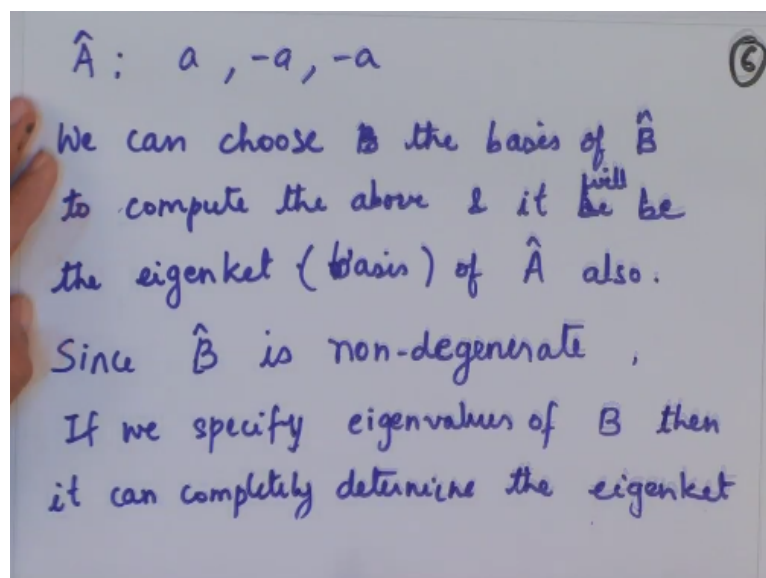 Â : a , -a , -a
⑥
We can choose the basis of B̂
to compute the above & it will be
the eigenket (basis) of Â also.
Since B̂ is non-degenerate ,
If we specify eigenvalues of B then
it can completely determine the eigenket